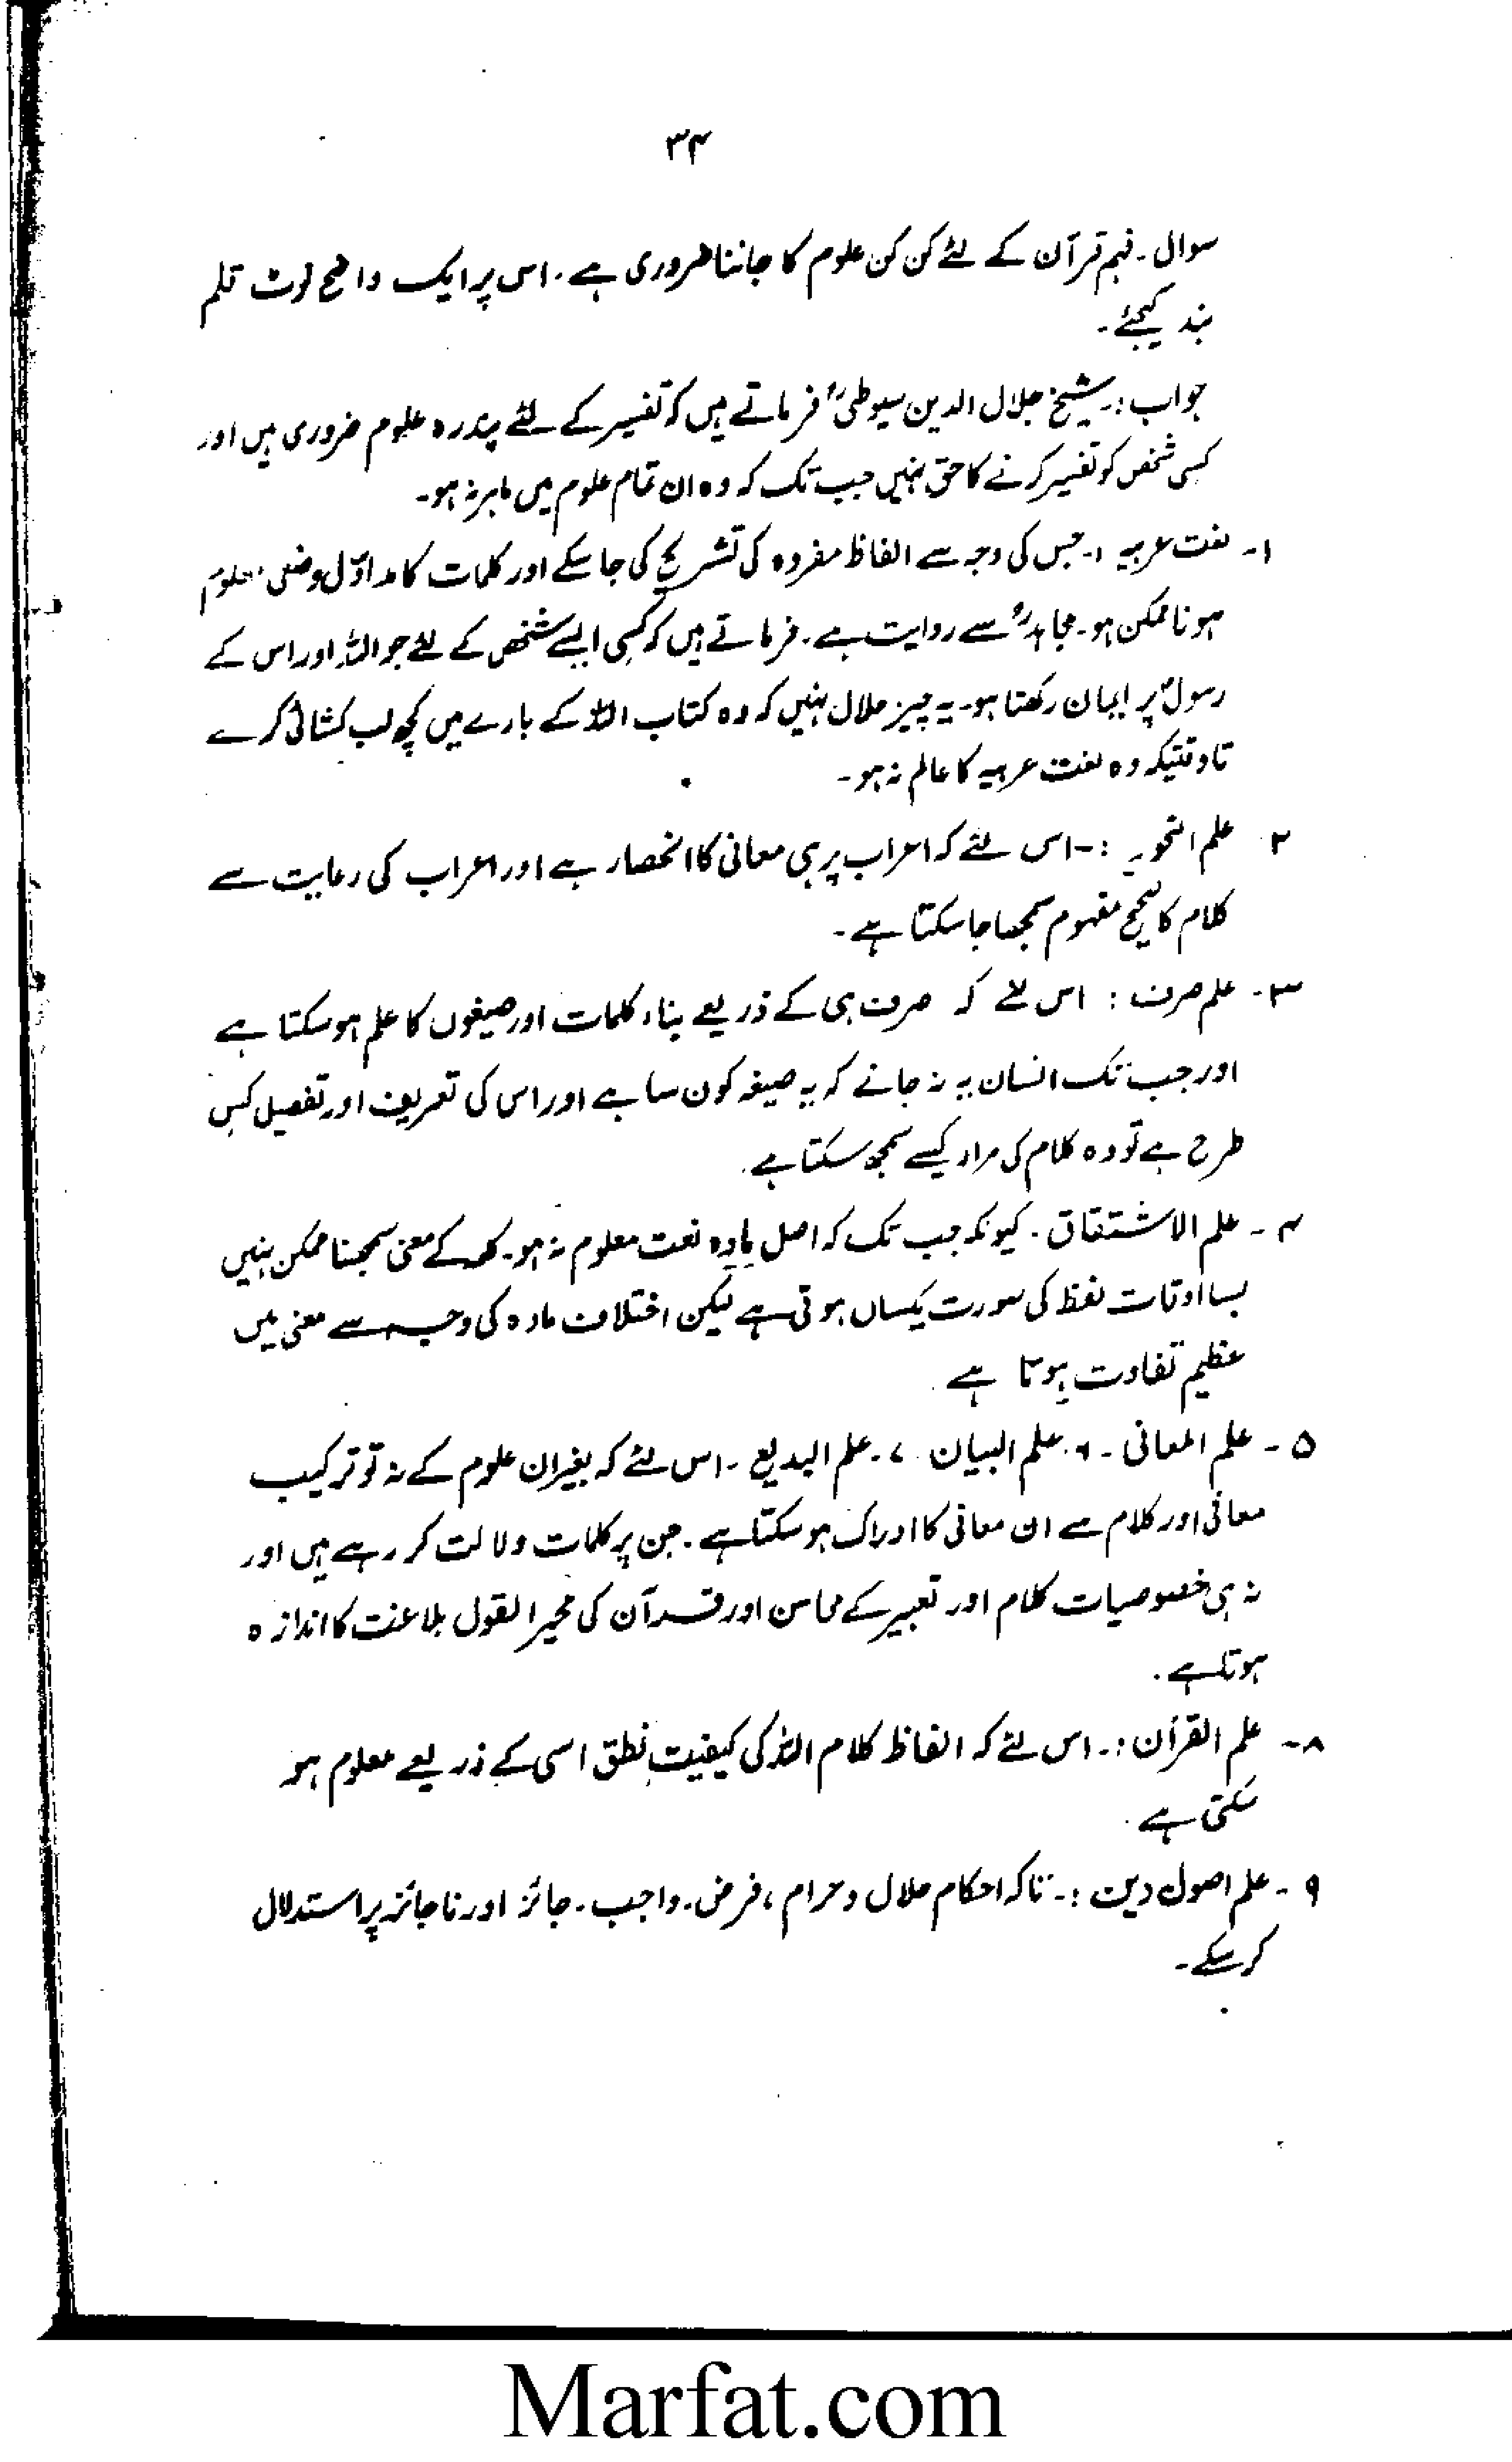 ۳۴
سوال۔ فہم قرآن کے لئے کن کن علوم کا جاننا ضروری ہے۔ اس پر ایک واضح نوٹ قلم
بند کیجئے۔
جواب:۔ شیخ جلال الدین سیوطیؒ فرماتے ہیں کہ تفسیر کے لئے پندرہ علوم ضروری ہیں اور
کسی شخص کو تفسیر کرنے کا حق نہیں جب تک کہ وہ ان تمام علوم میں ماہر نہ ہو۔
۱۔ لغت عربیہ :۔ جس کی وجہ سے الفاظ مفردہ کی تشریح کی جا سکے اور کلمات کا مدلول وضعی معلوم
ہونا ممکن ہو۔ مجاہدؒ سے روایت ہے۔ فرماتے ہیں کہ کسی ایسے شخص کے لئے جو اللہ اور اس کے
رسولؐ پر ایمان رکھتا ہو۔ یہ چیز حلال نہیں کہ وہ کتاب اللہ کے بارے میں کچھ لب کشائی کرے
تاوقتیکہ وہ لغت عربیہ کا عالم نہ ہو۔
۲۔ علم النحو :۔ اس لئے کہ اعراب پر ہی معانی کا انحصار ہے اور اعراب کی رعایت سے
کلام کا صحیح مفہوم سمجھا جا سکتا ہے۔
۳۔ علم صرف : اس لئے کہ صرف ہی کے ذریعے بناء کلمات اور صیغوں کا علم ہو سکتا ہے
اور جب تک انسان یہ نہ جانے کہ یہ صیغہ کون سا ہے اور اس کی تعریف اور تفصیل کس
طرح ہے تو وہ کلام کی مراد کیسے سمجھ سکتا ہے۔
۴۔ علم الاشتقاق۔ کیونکہ جب تک کہ اصل مادہ لغت معلوم نہ ہو۔ کے معنی سمجھنا ممکن نہیں
بسا اوقات لفظ کی صورت یکساں ہوتی ہے لیکن اختلاف مادہ کی وجہ سے معنی میں
عظیم تفاوت ہوتا ہے
۵۔ علم المعانی۔ ۶۔ علم البیان۔ ۷۔ علم البدیع۔ اس لئے کہ بغیر ان علوم کے نہ تو ترکیب
معانی اور کلام سے ان معانی کا ادراک ہو سکتا ہے۔ جن پر کلمات دلالت کر رہے ہیں اور
نہ ہی خصوصیات کلام اور تعبیر کے محاسن اور قرآن کی محیر العقول بلاغت کا اندازہ
ہوتا ہے۔
۸۔ علم القرآن :۔ اس لئے کہ الفاظ کلام اللہ کی کیفیتِ نطق اسی کے ذریعے معلوم ہو
سکتی ہے۔
۹۔ علم اصول دین :۔ تاکہ احکام حلال و حرام، فرض۔ واجب۔ جائز اور ناجائز پر استدلال
کر سکے۔
Marfat.com